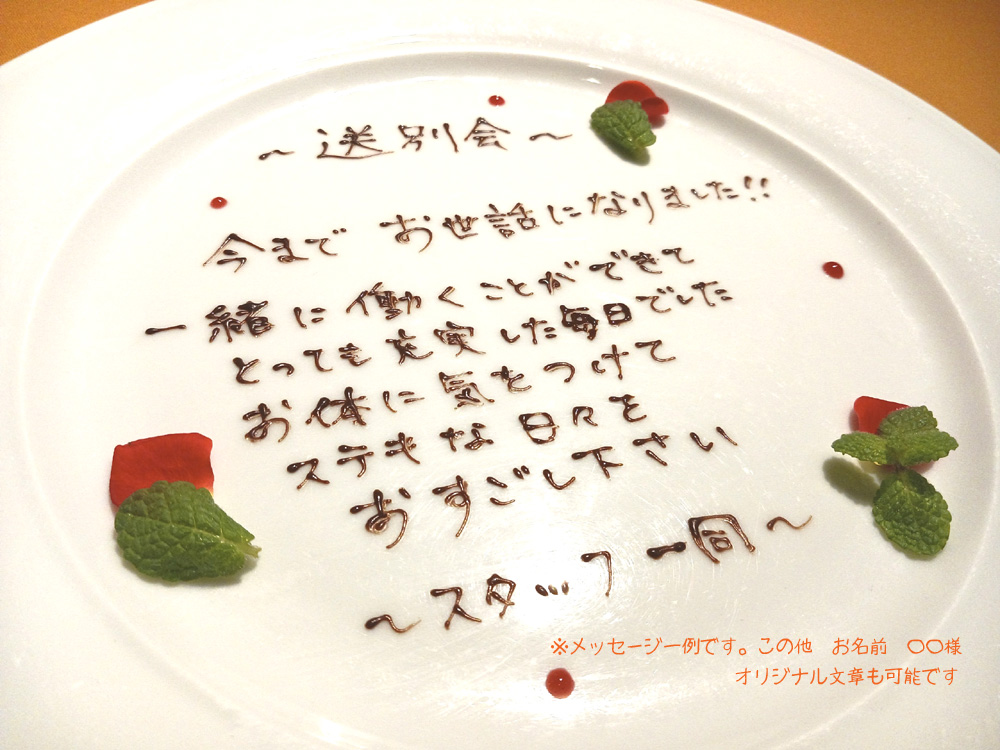 ～送別会～
今まで お世話になりました!!
一緒に働くことができて
とっても充実した毎日でした
お体に気をつけて
ステキな日々を
おすごし下さい
～スタッフ一同～
※メッセージ一例です。この他 お名前 〇〇様
オリジナル文章も可能です